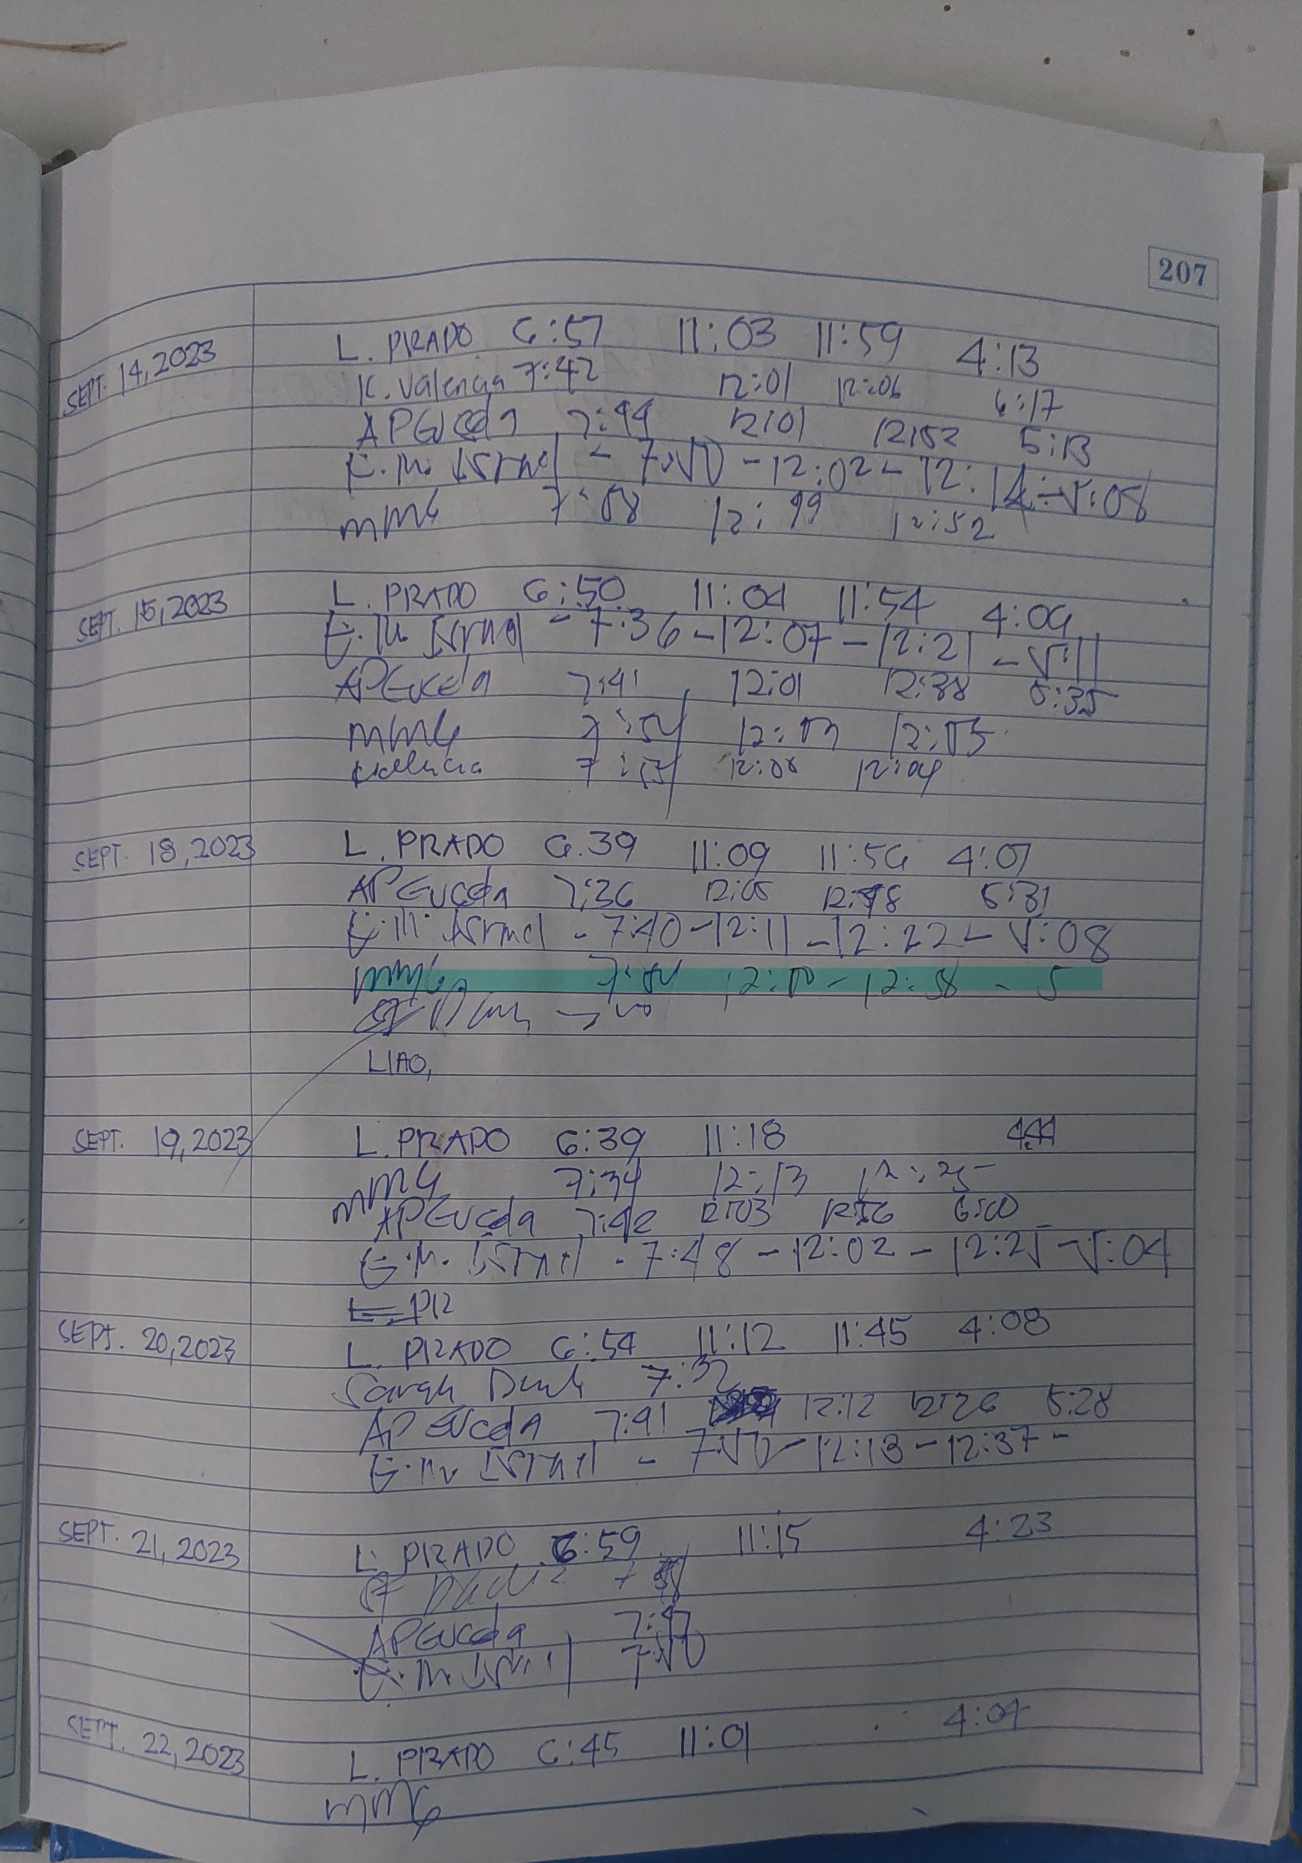 207
SEPT. 14, 2023 L. PRADO 6:57 11:03 11:59 4:13
K. Valencia 7:42 12:01 12:06 6:17
APEuceda 7:44 12:01 12:52 5:13
E.M. Isrnal - 7:50 - 12:02 - 12:14 - 5:08
MMG 7:58 12:49 12:52
SEPT. 15, 2023 L. PRADO 6:50 11:04 11:54 4:09
E.M. Isrnal - 7:36 - 12:07 - 12:21 - 5:11
APEuceda 7:41 12:01 12:38 5:35
MMG 7:54 12:03 12:05
Valencia 12:08 12:09
SEPT. 18, 2023 L. PRADO 6.39 11:09 11:56 4:07
APEuceda 7:36 12:05 12:48 5:31
E.M. Isrnal - 7:40 - 12:11 - 12:22 - 5:08
MMG 12:58 - 5
LIAO,
SEPT. 19, 2023 L. PRADO 6:39 11:18 4:44
MMG 7:34 12:13 12:25
APEuceda 7:42 12:03 12:56 6:00
E.M. Isrnal - 7:48 - 12:02 - 12:25 - 5:04
L. PR
SEPT. 20, 2023 L. PRADO 6:54 11:12 11:45 4:08
Sarah 7:32
AP Euceda 7:41 12:12 12:26 5:28
E.M. Isrnal - 7:50 - 12:13 - 12:37 -
SEPT. 21, 2023 L. PRADO 6:59 11:15 4:23
APEuceda 7:47
E.M. Isrnal 7:50
SEPT. 22, 2023 L. PRADO 6:45 11:01 4:07
MMG